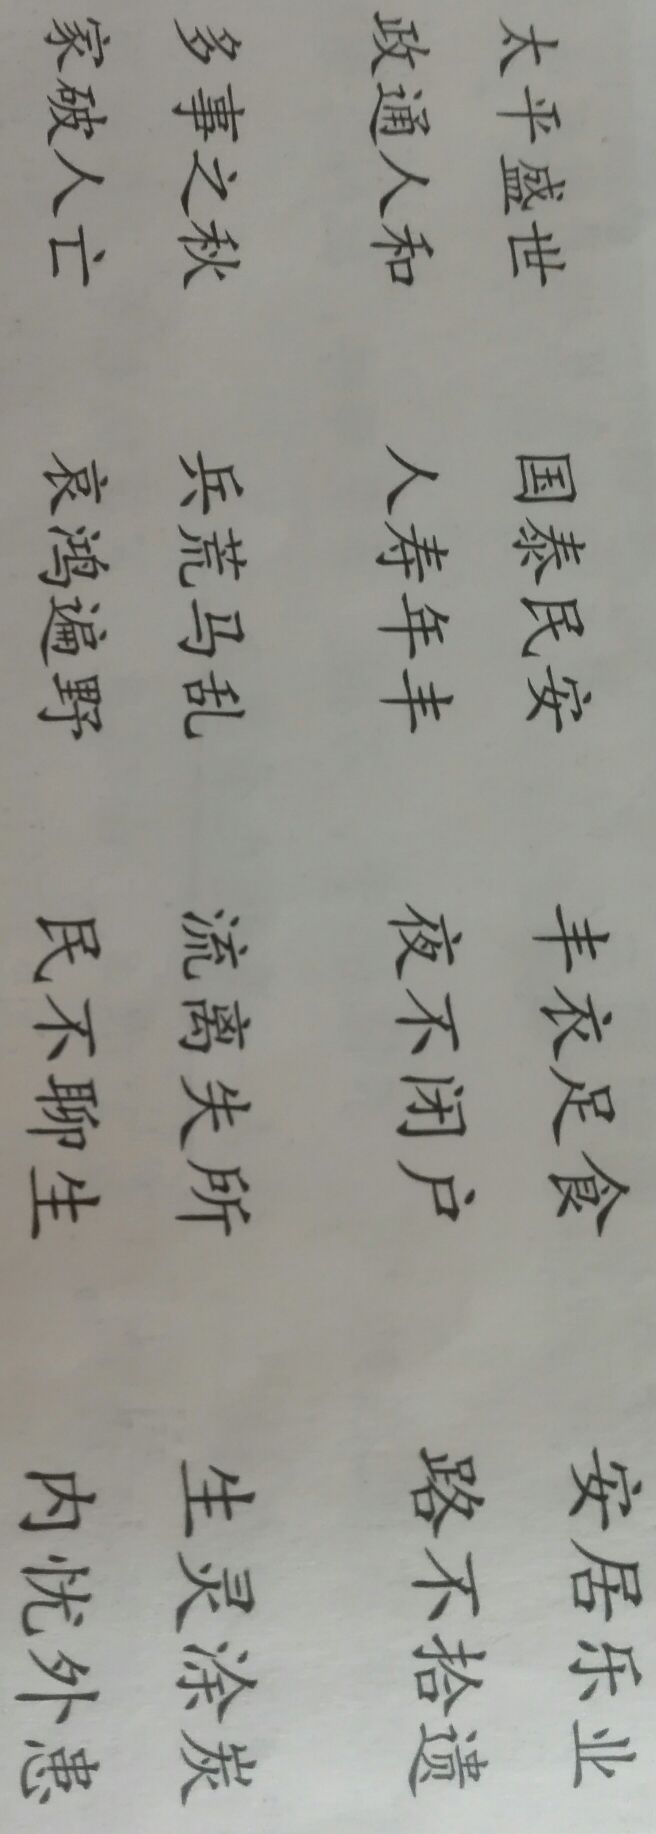 太平盛世 国泰民安 丰衣足食 安居乐业
政通人和 人寿年丰 夜不闭户 路不拾遗
多事之秋 兵荒马乱 流离失所 生灵涂炭
家破人亡 哀鸿遍野 民不聊生 内忧外患